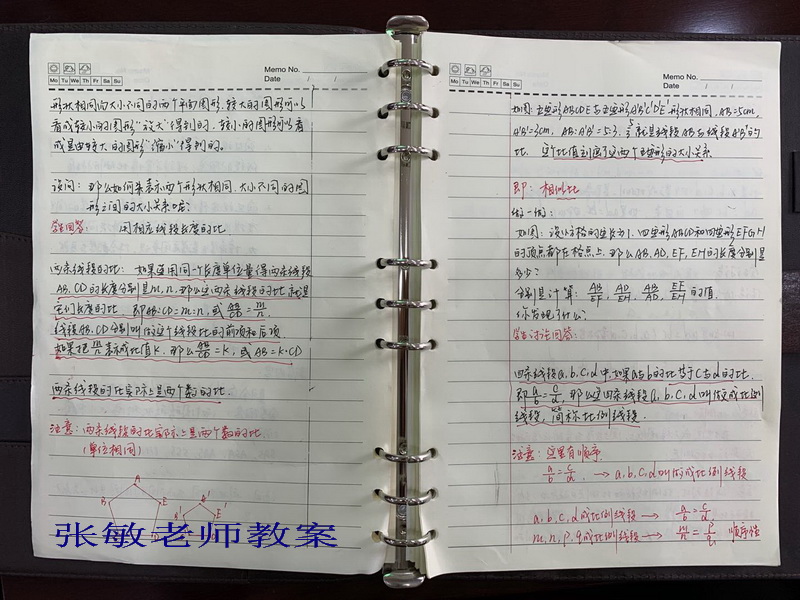 Memo No.
Date / /
Mo Tu We Th Fr Sa Su
形状相同而大小不同的两个平面图形,较大的图形可以
看成较小的图形"放大"得到的,较小的图形可以看
成是由较大的图形"缩小"得到的。
设问:那么如何来表示两个形状相同,大小不同的图
形之间的大小关系呢?
学生回答: 用相应线段长度的比
两条线段的比:如果选用同一个长度单位量得两条线段
AB、CD的长度分别是m、n,那么这两条线段的比就是
它们长度的比 即AB:CD=m:n,或AB/CD=m/n.
线段AB、CD分别叫做这个线段比的前项和后项
如果把m/n表示成比值k,那么AB/CD=k,或AB=k·CD
两条线段的比实际上是两个数的比.
注意:两条线段的比实际上是两个数的比.
(单位相同)
A
B
E
A'
B'
E'
张敏老师教案
Memo No.
Date / /
Mo Tu We Th Fr Sa Su
如图:五边形ABCDE与五边形A'B'C'D'E'形状相同,AB=5cm,
A'B'=3cm, AB:A'B'=5:3, 5/3就是线段AB与线段A'B'的
比. 这个比值刻画了这两个五边形的大小关系.
即:相似比
做一做:
如图:设小方格的边长为1,四边形ABCD和四边形EFGH
的顶点都在格点上,那么AB、AD、EF、EH的长度分别是
多少?
分别是计算:AB/EF, AD/EH, AB/AD, EF/EH的值.
你发现了什么?
学生讨论回答:
四条线段a、b、c、d中,如果a与b的比等于c与d的比.
即a/b=c/d,那么这四条线段a、b、c、d叫做成比例
线段,简称比例线段.
注意:这里有顺序.
a/b=c/d. → a、b、c、d叫做成比例线段
a、b、c、d成比例线段 → a/b=c/d
m、n、p、q成比例线段 → m/n=p/q